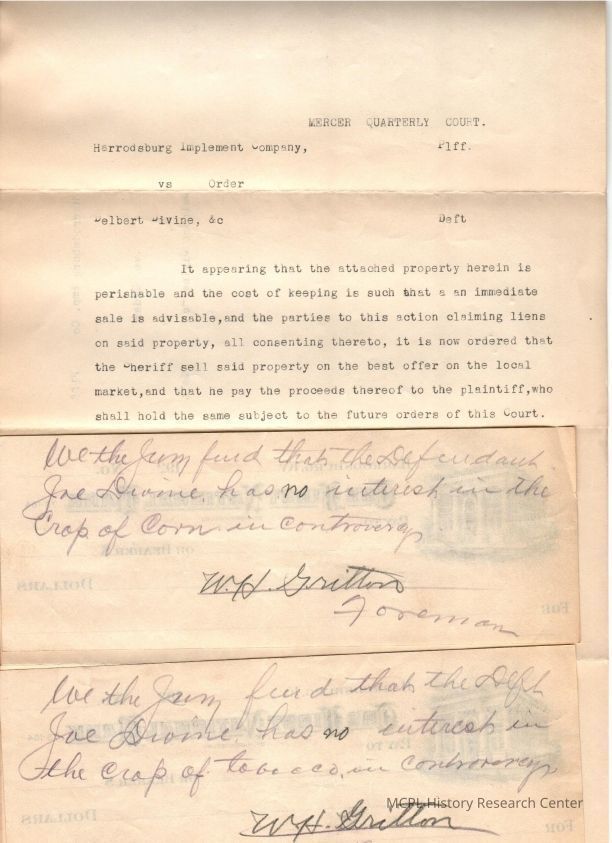 MERCER QUARTERLY COURT.
Harrodsburg Implement Company, Plff.
vs Order
Delbert Divine, &c Deft
It appearing that the attached property herein is
perishable and the cost of keeping is such that a an immediate
sale is advisable,and the parties to this action claiming liens
on said property, all consenting thereto, it is now ordered that
the Sheriff sell said property on the best offer on the local
market,and that he pay the proceeds thereof to the plaintiff,who
shall hold the same subject to the future orders of this Court.
We the Jury find that the Defendant
Joe Divine has no interest in the
Crop of Corn in controversy
W.H. Gritton
Foreman
DOLLARS
FOR
We the Jury find that the Deft
Joe Divine has no interest in
the crop of tobacco, in controversy
MCPL History Research Center
W.H. Gritton
DOLLARS
FOR